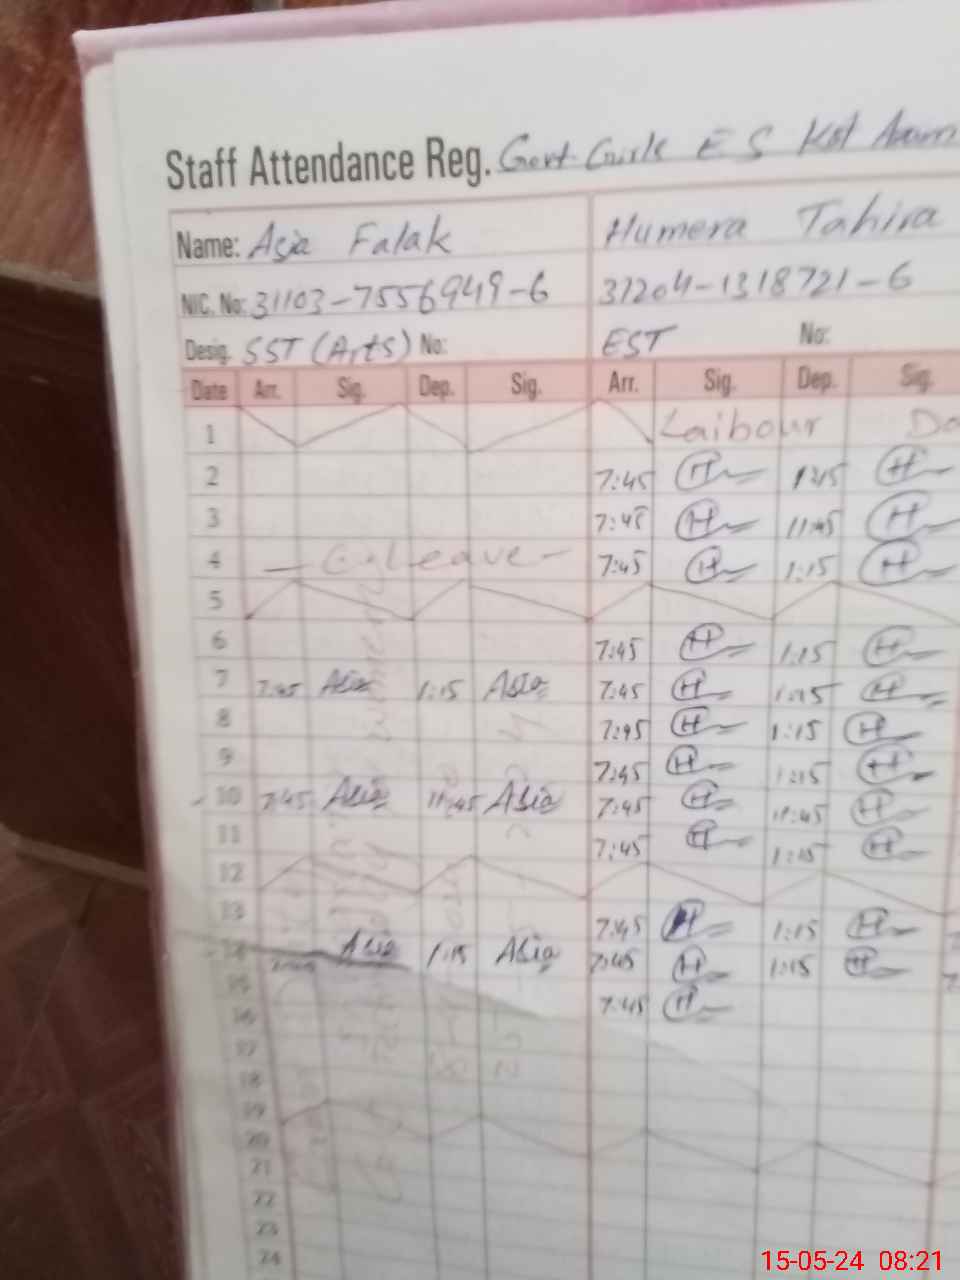 Staff Attendance Reg. Govt Girls E S Kot
Name: Asia Falak Humera Tahira
NIC. No: 31103-7556949-6 31204-1318721-6
Desig. SST (Arts) No: EST No:
Date Arr. Sig. Dep. Sig. Arr. Sig. Dep. Sig.
1 Laibour
2 7:45 H 1:15 H
3 7:45 H 11:45 H
4 Leave 7:45 H 1:15 H
5
6 7:45 H 1:15 H
7 7:45 Asia 1:15 Asia 7:45 H 1:15 H
8 7:45 H 1:15 H
9 7:45 H 1:15 H
10 7:45 Asia 11:45 Asia 7:45 H 11:45 H
11 7:45 H 1:15 H
12
13 7:45 H 1:15 H
14 Asia 1:15 Asia 7:45 H 1:15 H
15 7:45 H
16
17
18
19
20
21
22
23
24
15-05-24 08:21